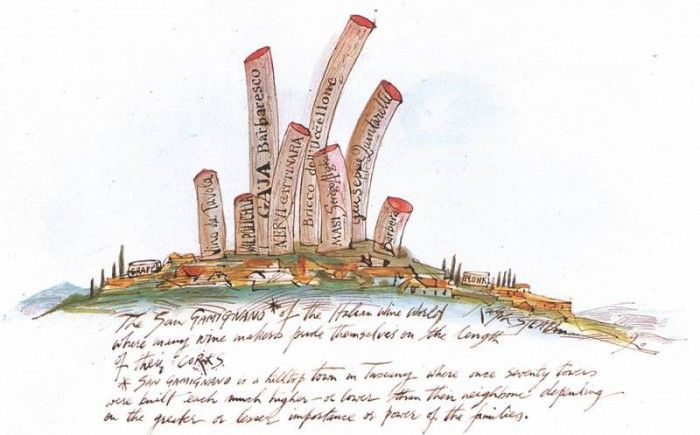 GAJA Barbaresco
Bricco dell'Uccellone
Giuseppe Quintarelli
VERVI GATTINARA
MASI Serego Alighieri
Vino da Tavola
Barbera
GRAPPA
PLONK
The San GAMIGNANO* of the Italian wine world
where many wine makers pride themselves on the length
of their CORKS.
* SAN GAMIGNANO is a hilltop town in Tuscany where once seventy towers
were built each much higher - or lower than their neighbour depending
on the greater or lesser importance or power of the families.